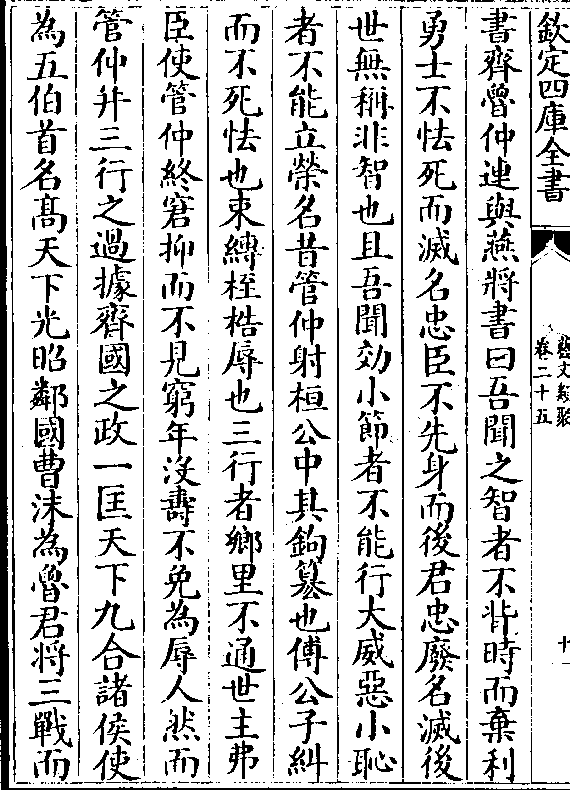 欽定四庫全書
藝文類聚
卷二十五
十一
書齊魯仲連與燕將書曰吾聞之智者不背時而棄利
勇士不怯死而滅名忠臣不先身而後君忠廢名滅後
世無稱非智也且吾聞効小節者不能行大威惡小恥
者不能立榮名昔管仲射桓公中其鉤篡也傅公子糾
而不死怯也束縛桎梏辱也三行者鄉里不通世主弗
臣使管仲終窘抑而不見窮年沒壽不免為辱人然而
管仲并三行之過據齊國之政一匡天下九合諸侯使
為五伯首名髙天下光昭鄰國曹沬為魯君将三戰而